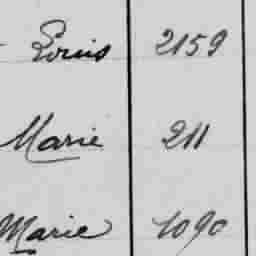 Louis 2159
Marie 211
Marie 1090